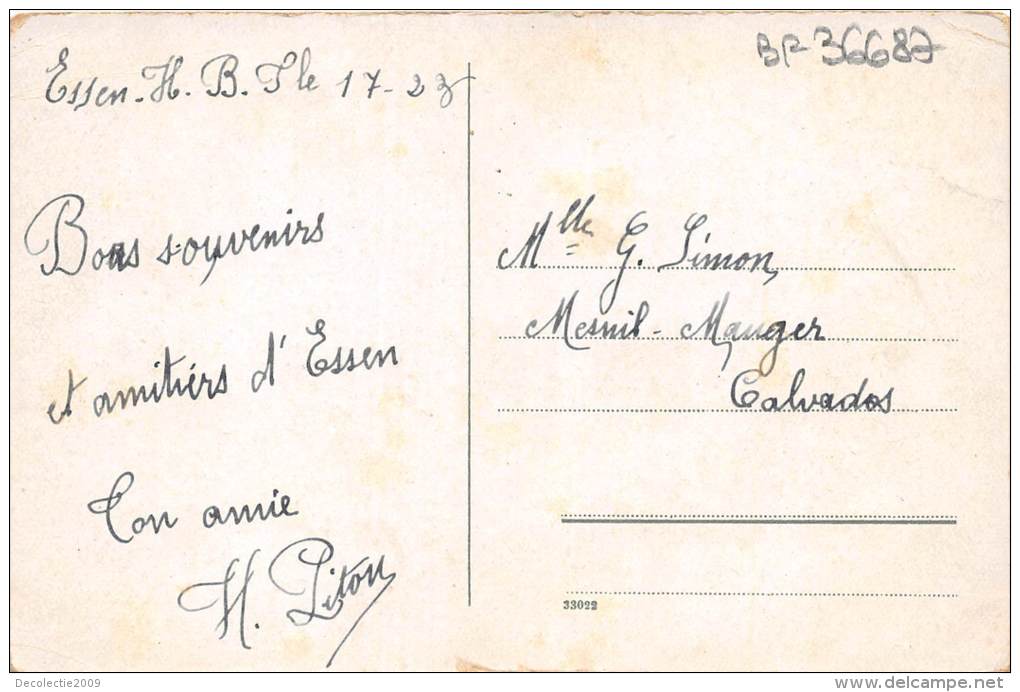 Essen-H. B. F le 17-23
BR 36687
Bons souvenirs
et amitiérs d'Essen
Ton amie
H. Piton
Mlle G. Simon,
Mesnil-Mauger
Calvados
33022
Decolectie2009
www.delcampe.net